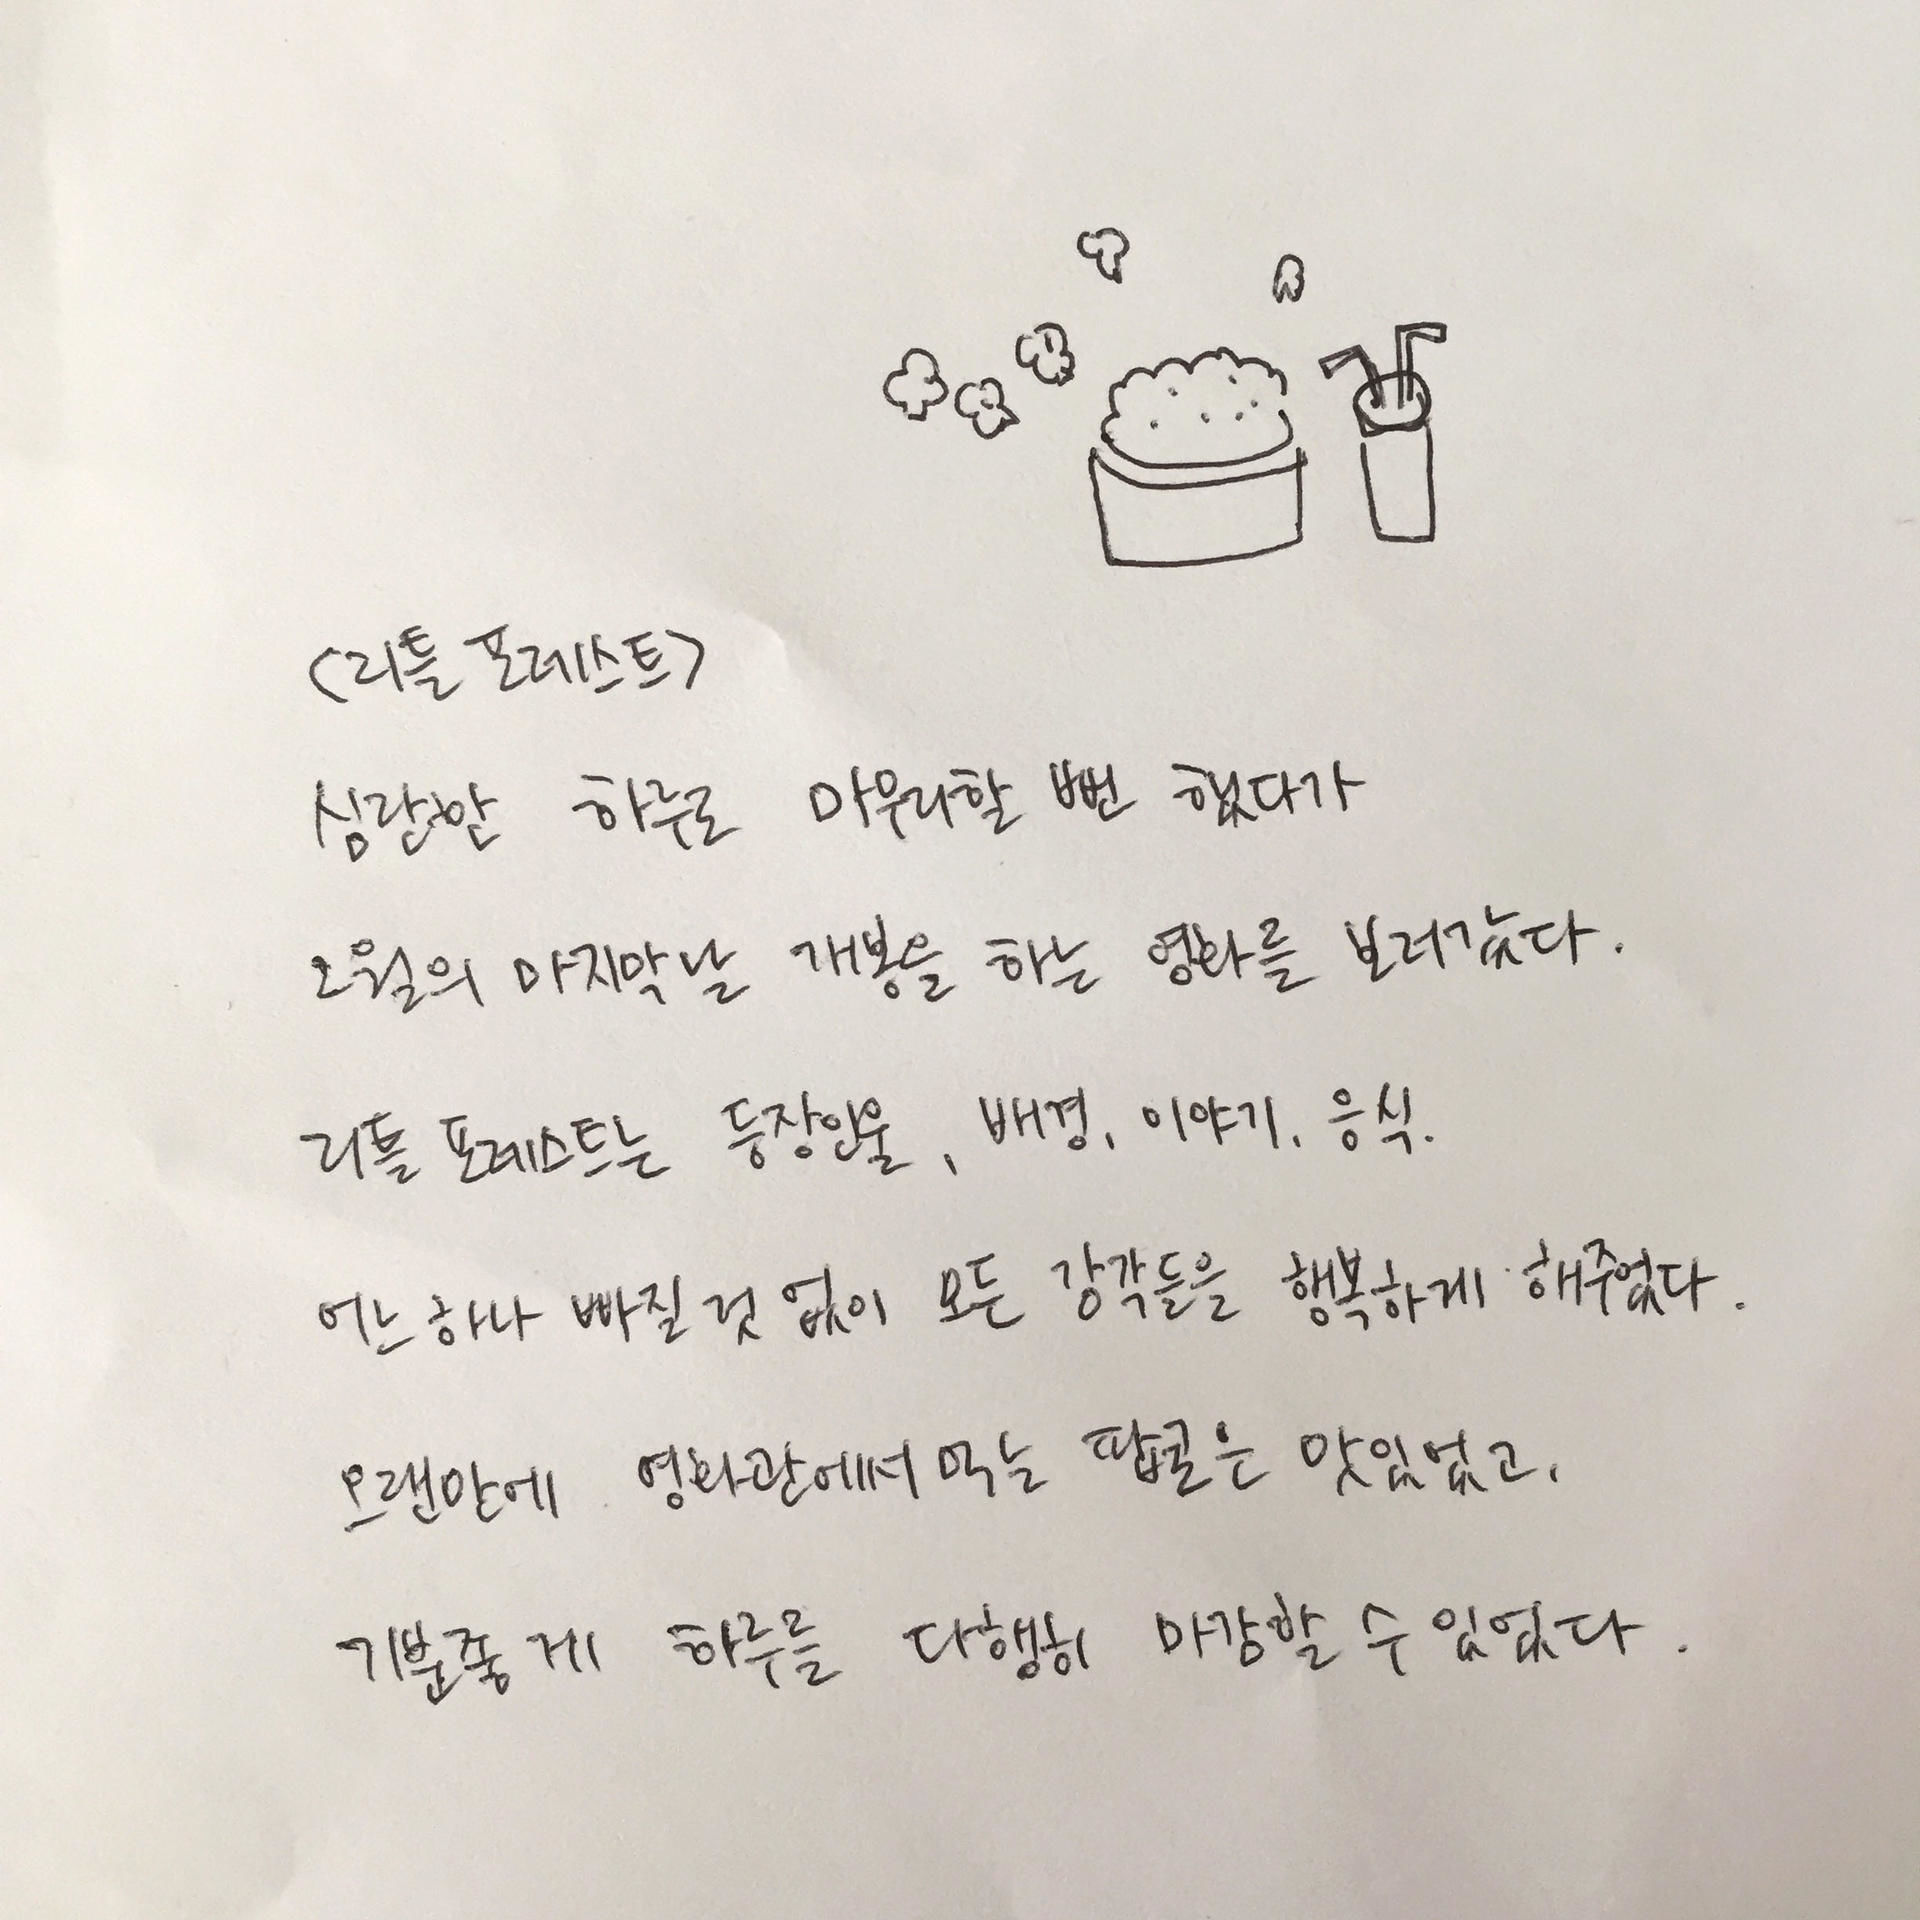 <리틀 포레스트>
심란한 하루로 마무리할 뻔 했다가
2월의 마지막날 개봉을 하는 영화를 보러갔다.
리틀 포레스트는 등장인물, 배경, 이야기, 음식.
어느하나 빠질 것 없이 모든 감각들을 행복하게 해주었다.
오랜만에 영화관에서 먹는 팝콘은 맛있었고,
기분좋게 하루를 다행히 마감할 수 있었다.